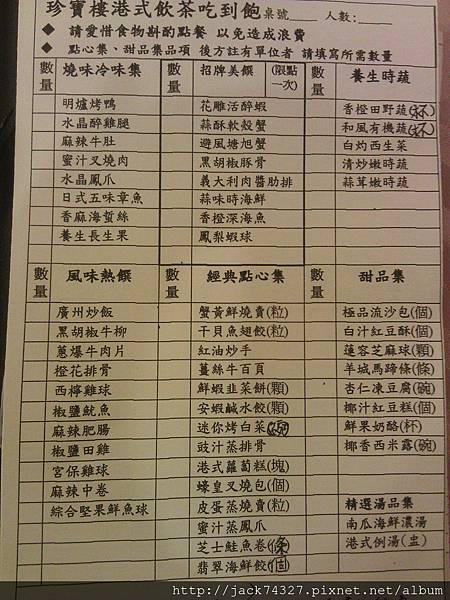 珍寶樓港式飲茶吃到飽 桌號___ 人數:____
◆ 請愛惜食物斟酌點餐 以免造成浪費
◆ 點心集、甜品集品項 後方註有單位者 請填寫所需數量
數量 燒味冷味集 數量 招牌美饌 (限點一次) 數量 養生時蔬
明爐烤鴨 花雕活醉蝦 香橙田野蔬(杯)
水晶醉雞腿 蒜酥軟殼蟹 和風有機蔬(杯)
麻辣牛肚 避風塘旭蟹 白灼西生菜
蜜汁叉燒肉 黑胡椒豚骨 清炒嫩時蔬
水晶鳳爪 義大利肉醬肋排 蒜茸嫩時蔬
日式五味章魚 蒜味時海鮮
香麻海蜇絲 香橙深海魚
養生長生果 鳳梨蝦球
數量 風味熱饌 數量 經典點心集 數量 甜品集
廣州炒飯 蟹黃鮮燒賣(粒) 極品流沙包(個)
黑胡椒牛柳 干貝魚翅餃(粒) 白汁紅豆酥(個)
蔥爆牛肉片 紅油炒手 蓮容芝麻球(顆)
橙花排骨 薑絲牛百頁 羊城馬蹄條(條)
西檸雞球 鮮蝦韭菜餅(顆) 杏仁凍豆腐(碗)
椒鹽魷魚 安蝦鹹水餃(顆) 椰汁紅豆糕(個)
麻辣肥腸 迷你烤白菜(碗) 鮮果奶酪(杯)
椒鹽田雞 豉汁蒸排骨 椰香西米露(碗)
宮保雞球 港式蘿蔔糕(塊)
麻辣中卷 蠔皇叉燒包(個)
綜合堅果鮮魚球 皮蛋蒸燒賣(粒) 精選湯品集
蜜汁蒸鳳爪 南瓜海鮮濃湯
芝士鮭魚卷(條) 港式例湯(盅)
翡翠海鮮餃(個)
http://jack74327.pixnet.net/album